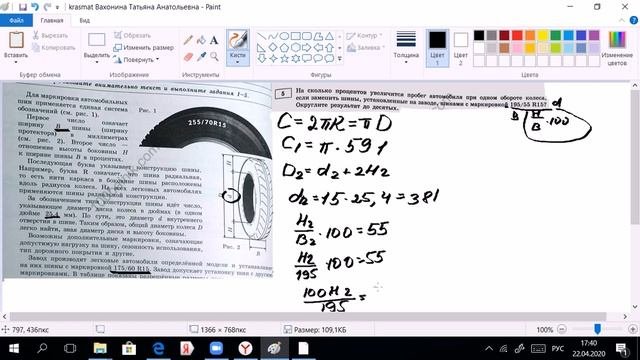 krasmat Вахонина Татьяна Анатольевна - Paint
Файл
Главная
Вид
Вставить
Вырезать
Копировать
Выделить
Обрезать
Изменить размер
Повернуть
Кисти
Фигуры
Контур
Заливка
Толщина
Цвет 1
Цвет 2
Изменение цветов
Буфер обмена
Изображение
Инструменты
Цвета
внимательно текст и выполните задания 1–5.
Для маркировки автомобильных
шин применяется единая система
обозначений (см. рис. 1).
Первое число означает
ширину B шины (ширину
протектора) в миллиметрах
(см. рис. 2). Второе число —
отношение высоты боковины H
к ширине шины B в процентах.
Последующая буква указывает конструкцию шины.
Например, буква R означает, что шина радиальная,
то есть нити каркаса в боковине шины расположены
вдоль радиусов колеса. На всех легковых автомобилях
применяются шины радиальной конструкции.
За обозначением типа конструкции шины идёт число,
указывающее диаметр диска колеса в дюймах (в одном
дюйме 25,4 мм). По сути, это диаметр d внутреннего
отверстия в шине. Таким образом, общий диаметр колеса D
легко найти, зная диаметр диска и высоту боковины.
Возможны дополнительные маркировки, означающие
допустимую нагрузку на шину, сезонность использования,
тип дорожного покрытия и другие.
Завод производит легковые автомобили определённой модели и устанавливает
на них шины с маркировкой 175/60 R15. Завод допускает установку шин с другими
маркировками. В таблице показаны разрешённые размеры
Рис. 1
255/70R15
Рис. 2
5 На сколько процентов увеличится пробег автомобиля при одном обороте колеса,
если заменить шины, установленные на заводе, шинами с маркировкой 195/55 R15?
Округлите результат до десятых.
d
B
H/B · 100
C = 2πR = πD
C₁ = π · 591
D₂ = d₂ + 2H₂
d₂ = 15 · 25,4 = 381
H₂/B₂ · 100 = 55
H₂/195 · 100 = 55
100H₂/195 =
797, 436пкс
1366 × 768пкс
Размер: 109,1КБ
100%
РУС
17:40
22.04.2020